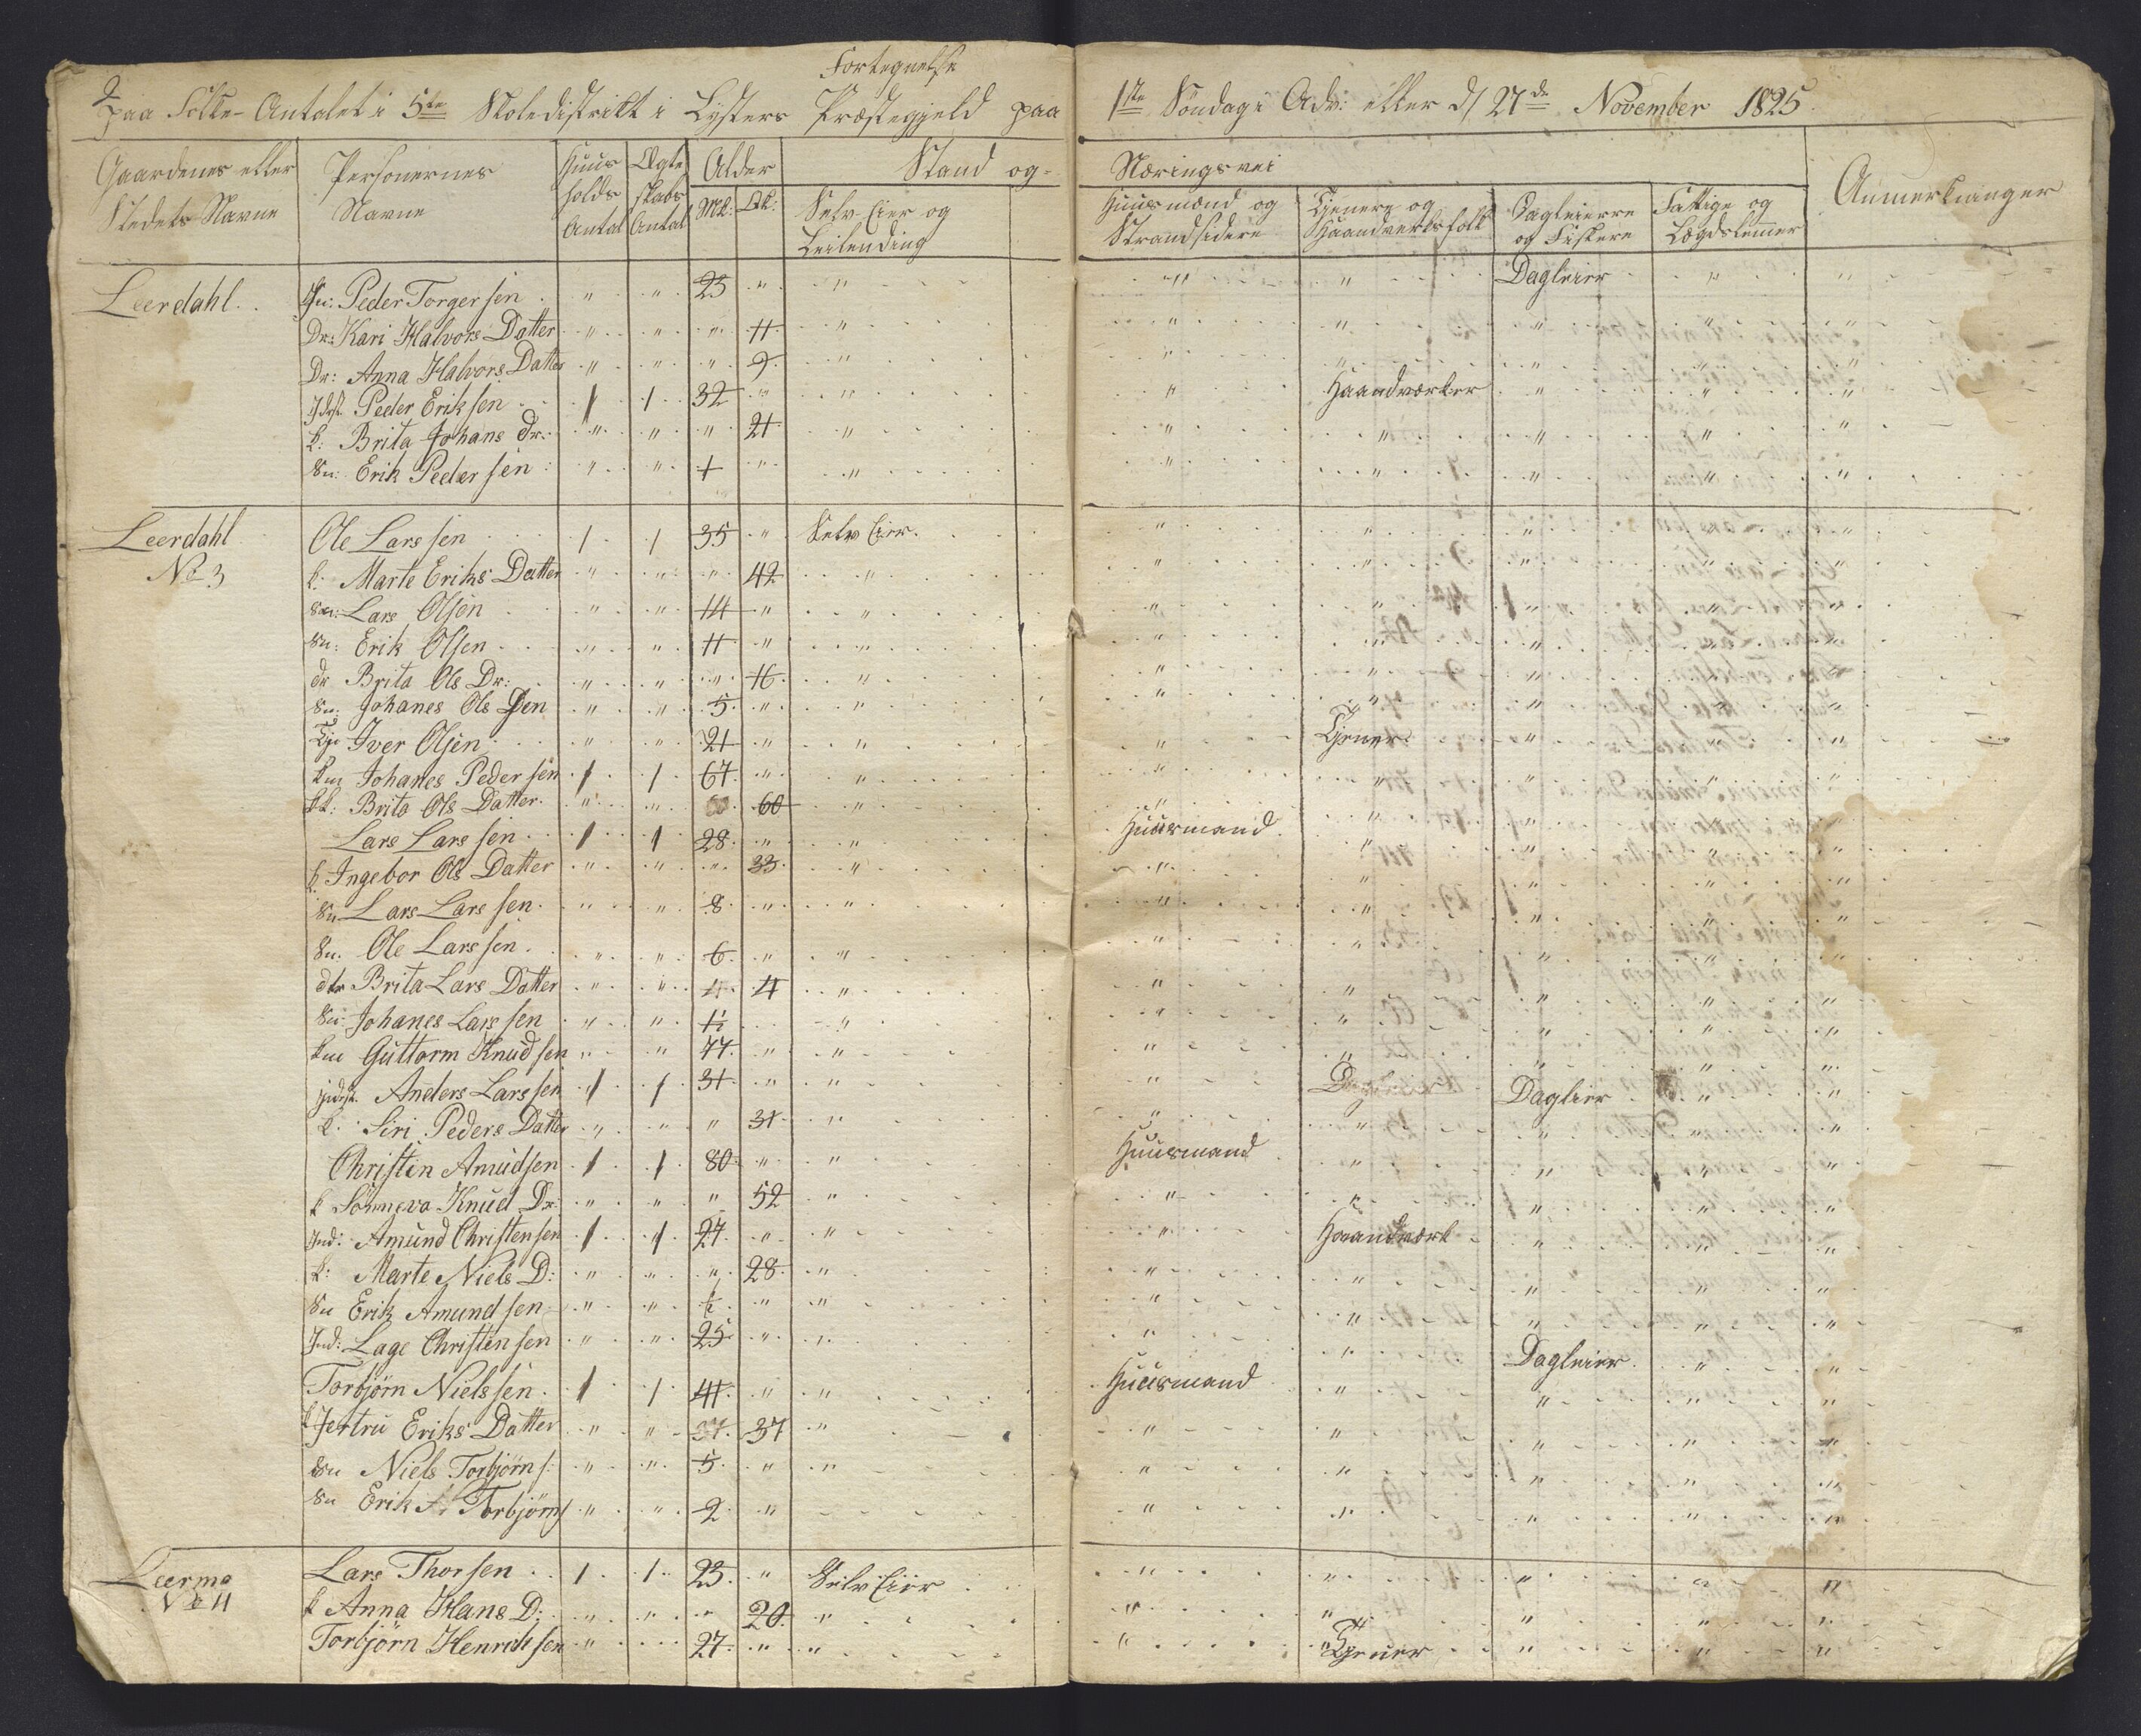 Fortegnelse
paa Folke-Antalet i 5te Skoledistrikt i Lysters Præstegjeld paa 1ste Söndag i Adv: eller d/ 27de November 1825.
Gaardenes eller Stedets Navne | Personernes Navne | Huus holds Antal | Ægte skabs Antal | Alder Mk: Qk: | Stand og - Næringsvei | Anmerkninger
Selv Eier og Leilending | Huusmænd og Strandsidere | Tjenere og Haandverksfolk | Dagleiere og Fiskere | Fattige og Lægdslemmer
Leerdahl. Peder Torgersen . " " 25 " " " " Dagleier " "
Dr: Kari Halvors Datter " " " 11 " " " " " "
Dr: Anna Halvors Datter " " " 9 " " " " " "
Indst Peder Eriksen 1 1 32 " " " Haandværker " " "
k: Brita Johans Dr: " " " 21 " " " " " "
Sn: Erik Pedersen " " 1 " " " " " " "
Leerdahl Ole Larssen 1 1 35 " Selv Eier. " " " " "
No 3 k: Marte Eriks Datter " " " 42 " " " " " "
Sn: Lars Olsen " " 14 " " " " " " "
Sn: Erik Olsen " " 11 " " " " " " "
dr Brita Ols Dr: " " " 16 " " " " " "
Sn: Johanes Ols Sen " " 5 " " " " " " "
Tje Iver Olsen " " 21 " " " Tjener " " "
Km Johanes Pedersen 1 1 67 " " " " " " "
kk: Brita Ols Datter " " 60 " " " " " "
Lars Larssen 1 1 28 " " Huusmand " " " "
k Ingebor Ols Datter " " " 33 " " " " " "
Sn Lars Larssen " " 8 " " " " " " "
Sn. Ole Larssen " " 6 " " " " " " "
dtr Brita Lars Datter " " 4 " " " " " "
Sn Johanes Larssen " " 1½ " " " " "
Km Guttorm Knudsen " " 77 " " " " " " "
Indst. Anders Larssen 1 1 31 " " " Dagleier " "
k: Siri Peders Datter " " " 31 " " " " " "
Christen Amudsen 1 1 80 " " Huusmand " " " "
k Sönneva Knud Dr: " " " 52 " " " " " "
Ind: Amund Christensen 1 1 27 " " " Haandværk " " "
k: Marte Niels D: " " " 28 " " " " " "
Sn Erik Amundsen " " ½ " " " " " " "
Ind: Lage Christensen " " 25 " " " " Dagleier " "
Torbjörn Nielssen 1 1 41 " " Huusmand " " " "
k Jertru Eriks Datter " " 37 " " " " " "
Sn Niels Torbjörn s: " " 5 " " " " " " "
Sn Erik Torbjörns " " 2 " " " " " "
Leermo Lars Thorsen 1 1 23 " Selv Eier " " " " "
k Anna Hans D: " " " 20 " " " " " "
Torbjörn Henriksen " 27 " " " Tjener " " "